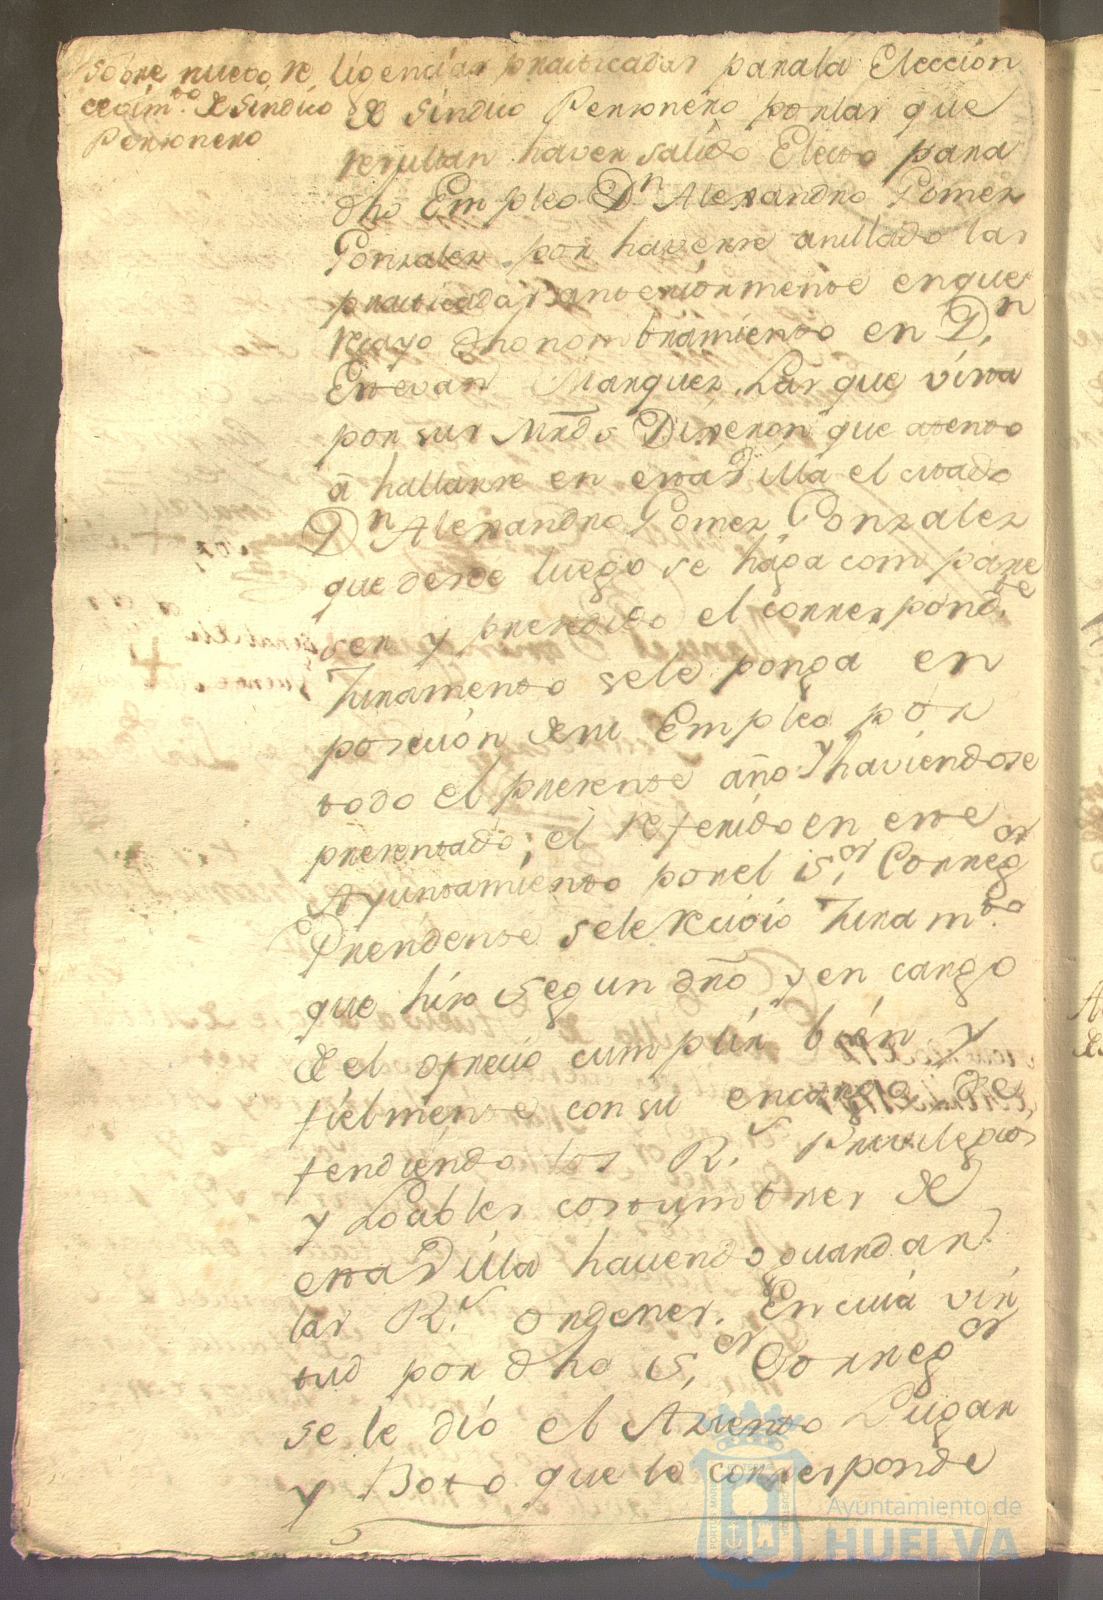 Sobre nuevo re
cevim.to de Sindico
Personero
ligencias practicadas para la Eleccion
de Sindico Personero por las que
resultan haver salido Electo para
dho Empleo D.n Alexandro Gomez
Gonzalez por haverse anullado las
practicadas anteriormente en que
recayo dho nombramiento en D.n
Estevan Marquez. Las que vista
por sus Mrds Dixeron que atento
a hallarse en esta Villa el citado
D.n Alexandro Gomez Gonzalez
que desde luego se haga compare
ser y presedido el correspond.te
Juramento se le ponga en
posecion de su Empleo por
todo el presente año y haviendose
presentado el referido en este
Ayuntamiento por el S.or Correg.or
Prendente se le recivio Juram.to
que hizo segun dro y en cargo
de el ofrecio cumplir bien y
fielmente con su encargo De
fendiendo los R.s Privilegios
y Loables costumbres de
esta Villa haciendo guardar
las R.s ordenes. En cuia vir
tud por dho S.or Correg.or
se le dió el Aziento Lugar
y Boto que le corresponde
Ayuntamiento de
HUELVA